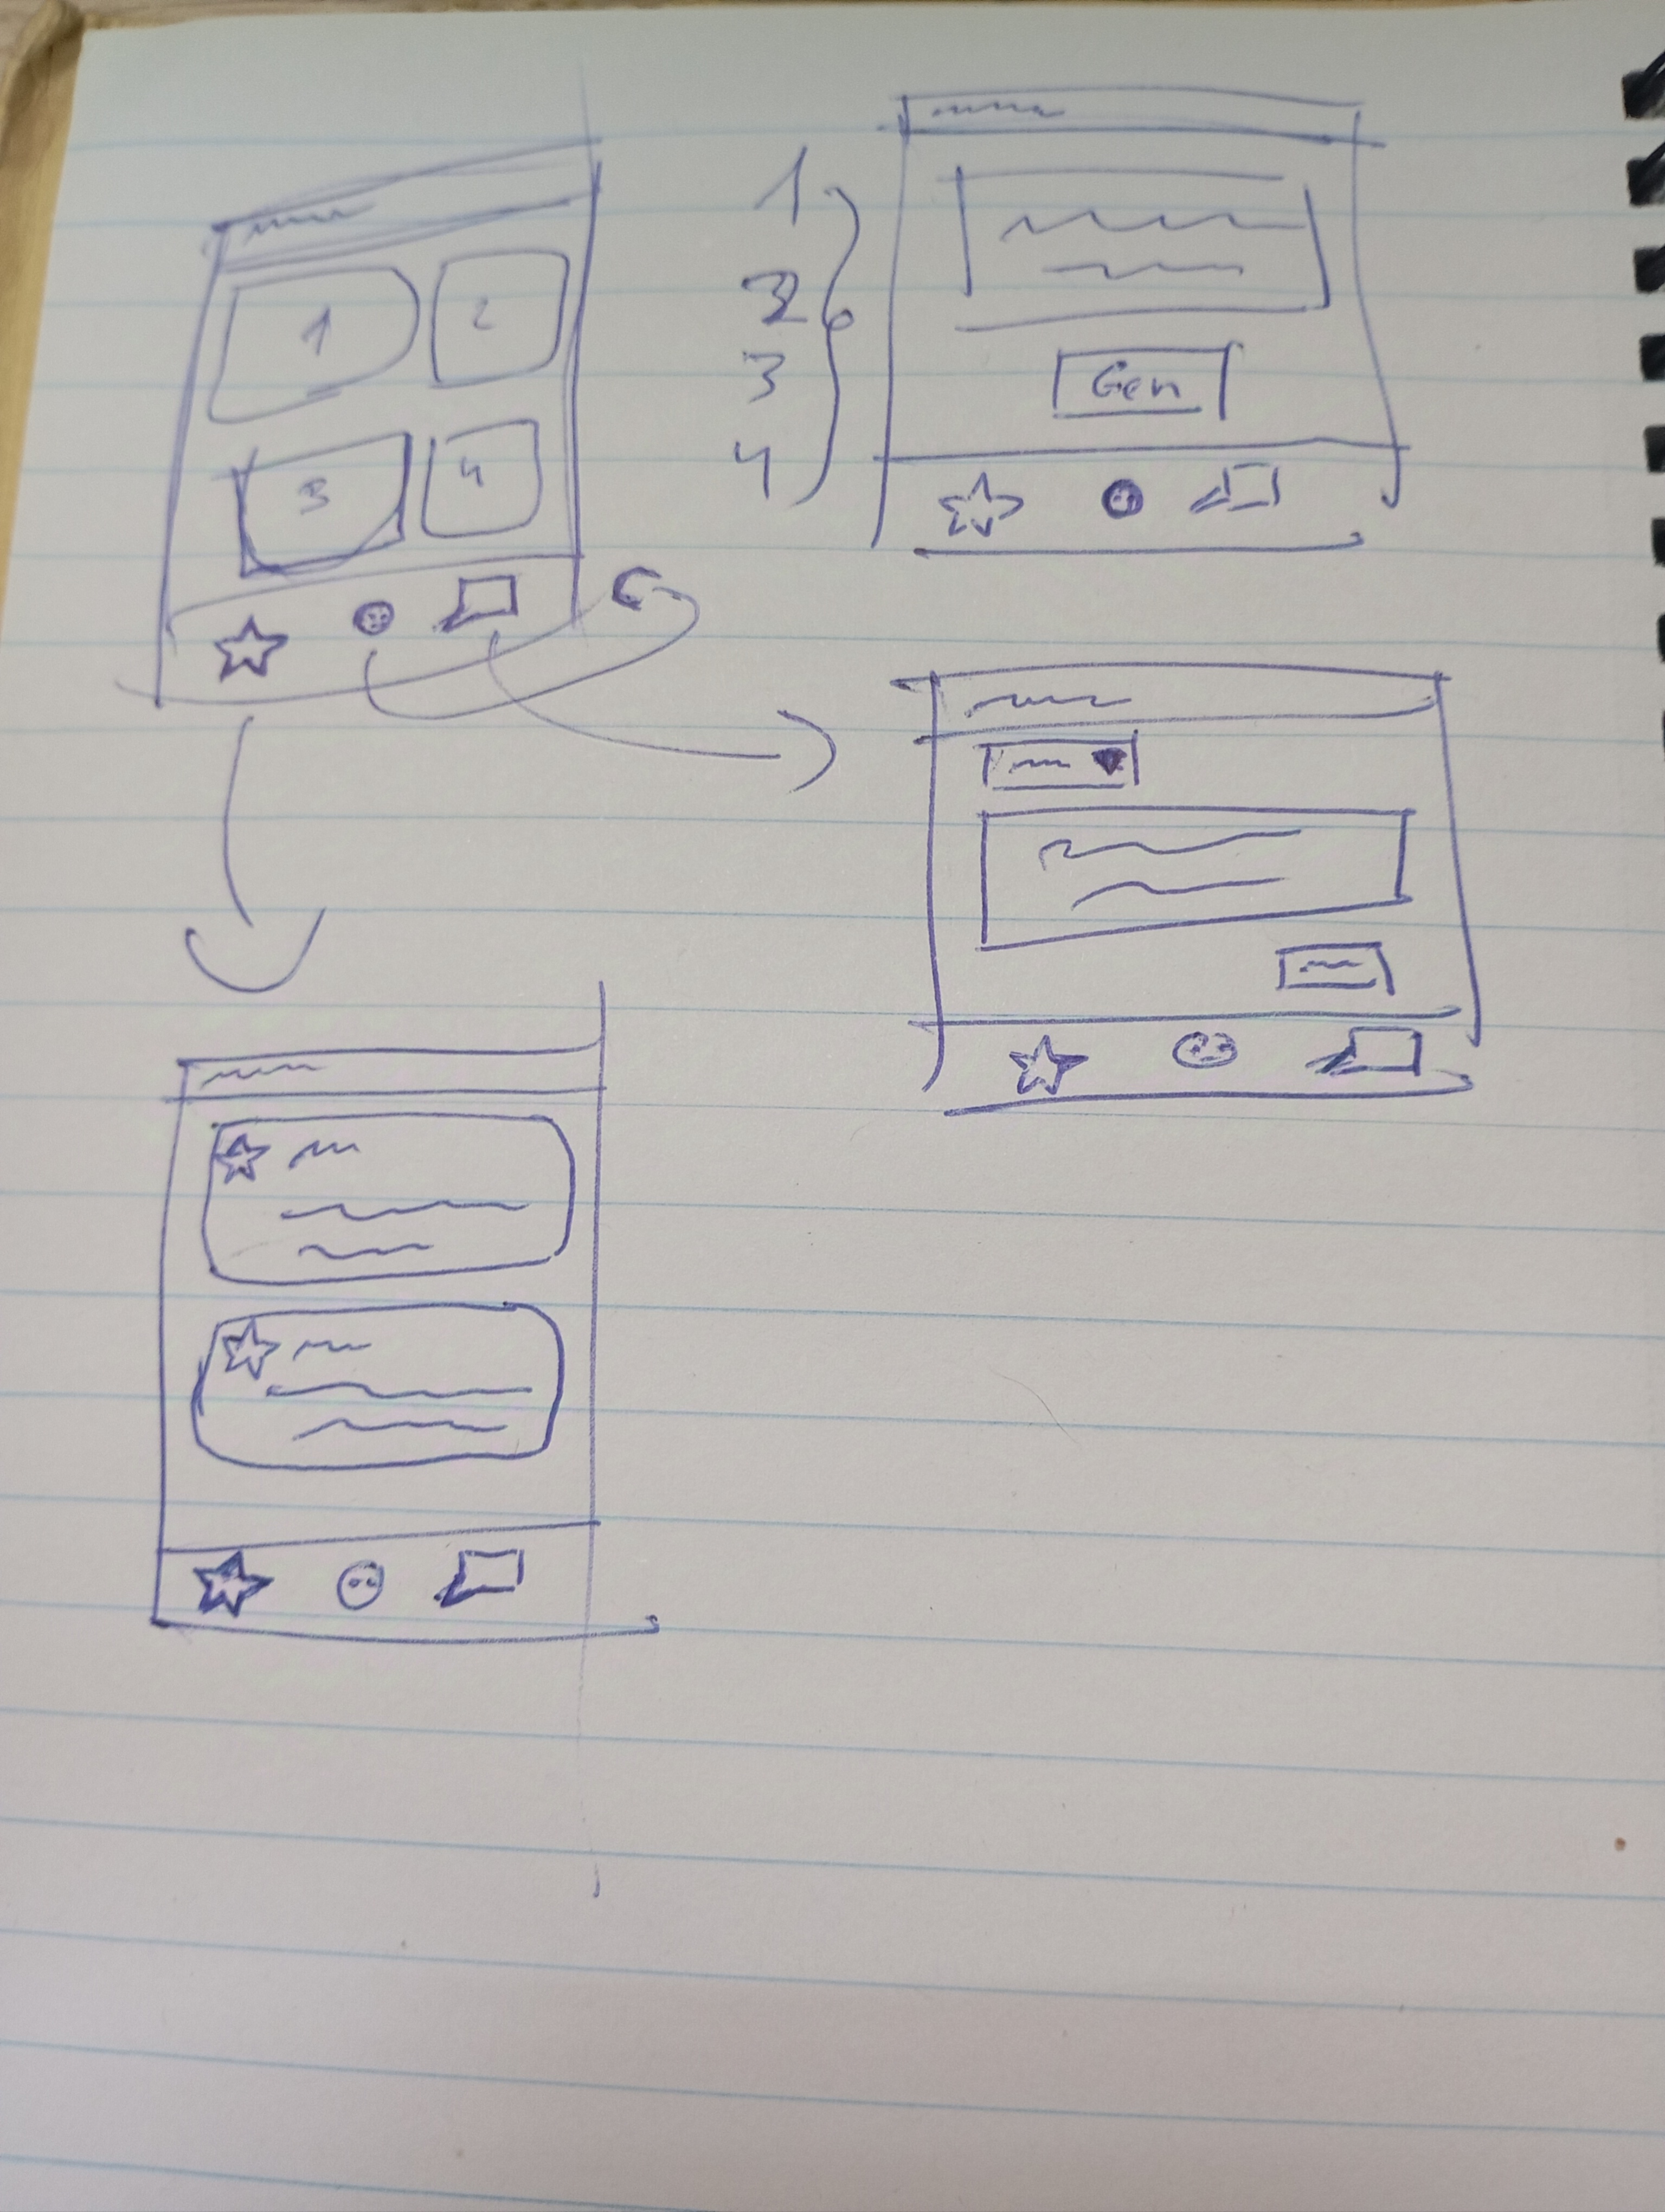 1 2
3 4
1
2
3
4
Gen